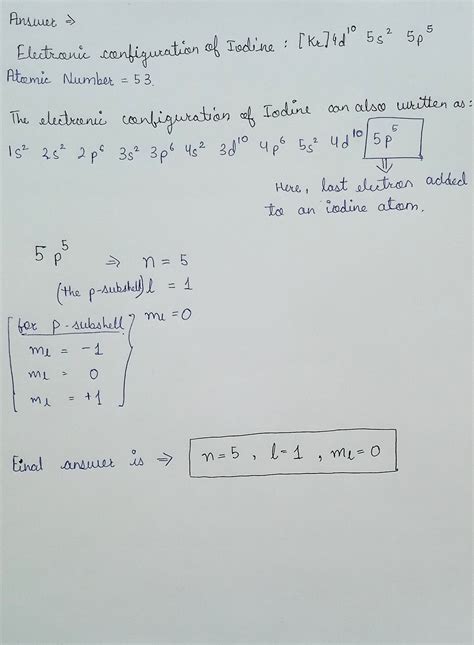 Answer ⇒
Electronic configuration of Iodine : [Kr] 4d¹⁰ 5s² 5p⁵
Atomic Number = 53.
The electronic configuration of Iodine can also written as:
1s² 2s² 2p⁶ 3s² 3p⁶ 4s² 3d¹⁰ 4p⁶ 5s² 4d¹⁰ 5p⁵
⇓
Here, last electron added
to an iodine atom.
5p⁵ ⇒ n = 5
(the p-subshell) l = 1
mₗ = 0
[for p-subshell
mₗ = -1
mₗ = 0
mₗ = +1]
Final answer is ⇒ n=5 , l=1 , mₗ=0